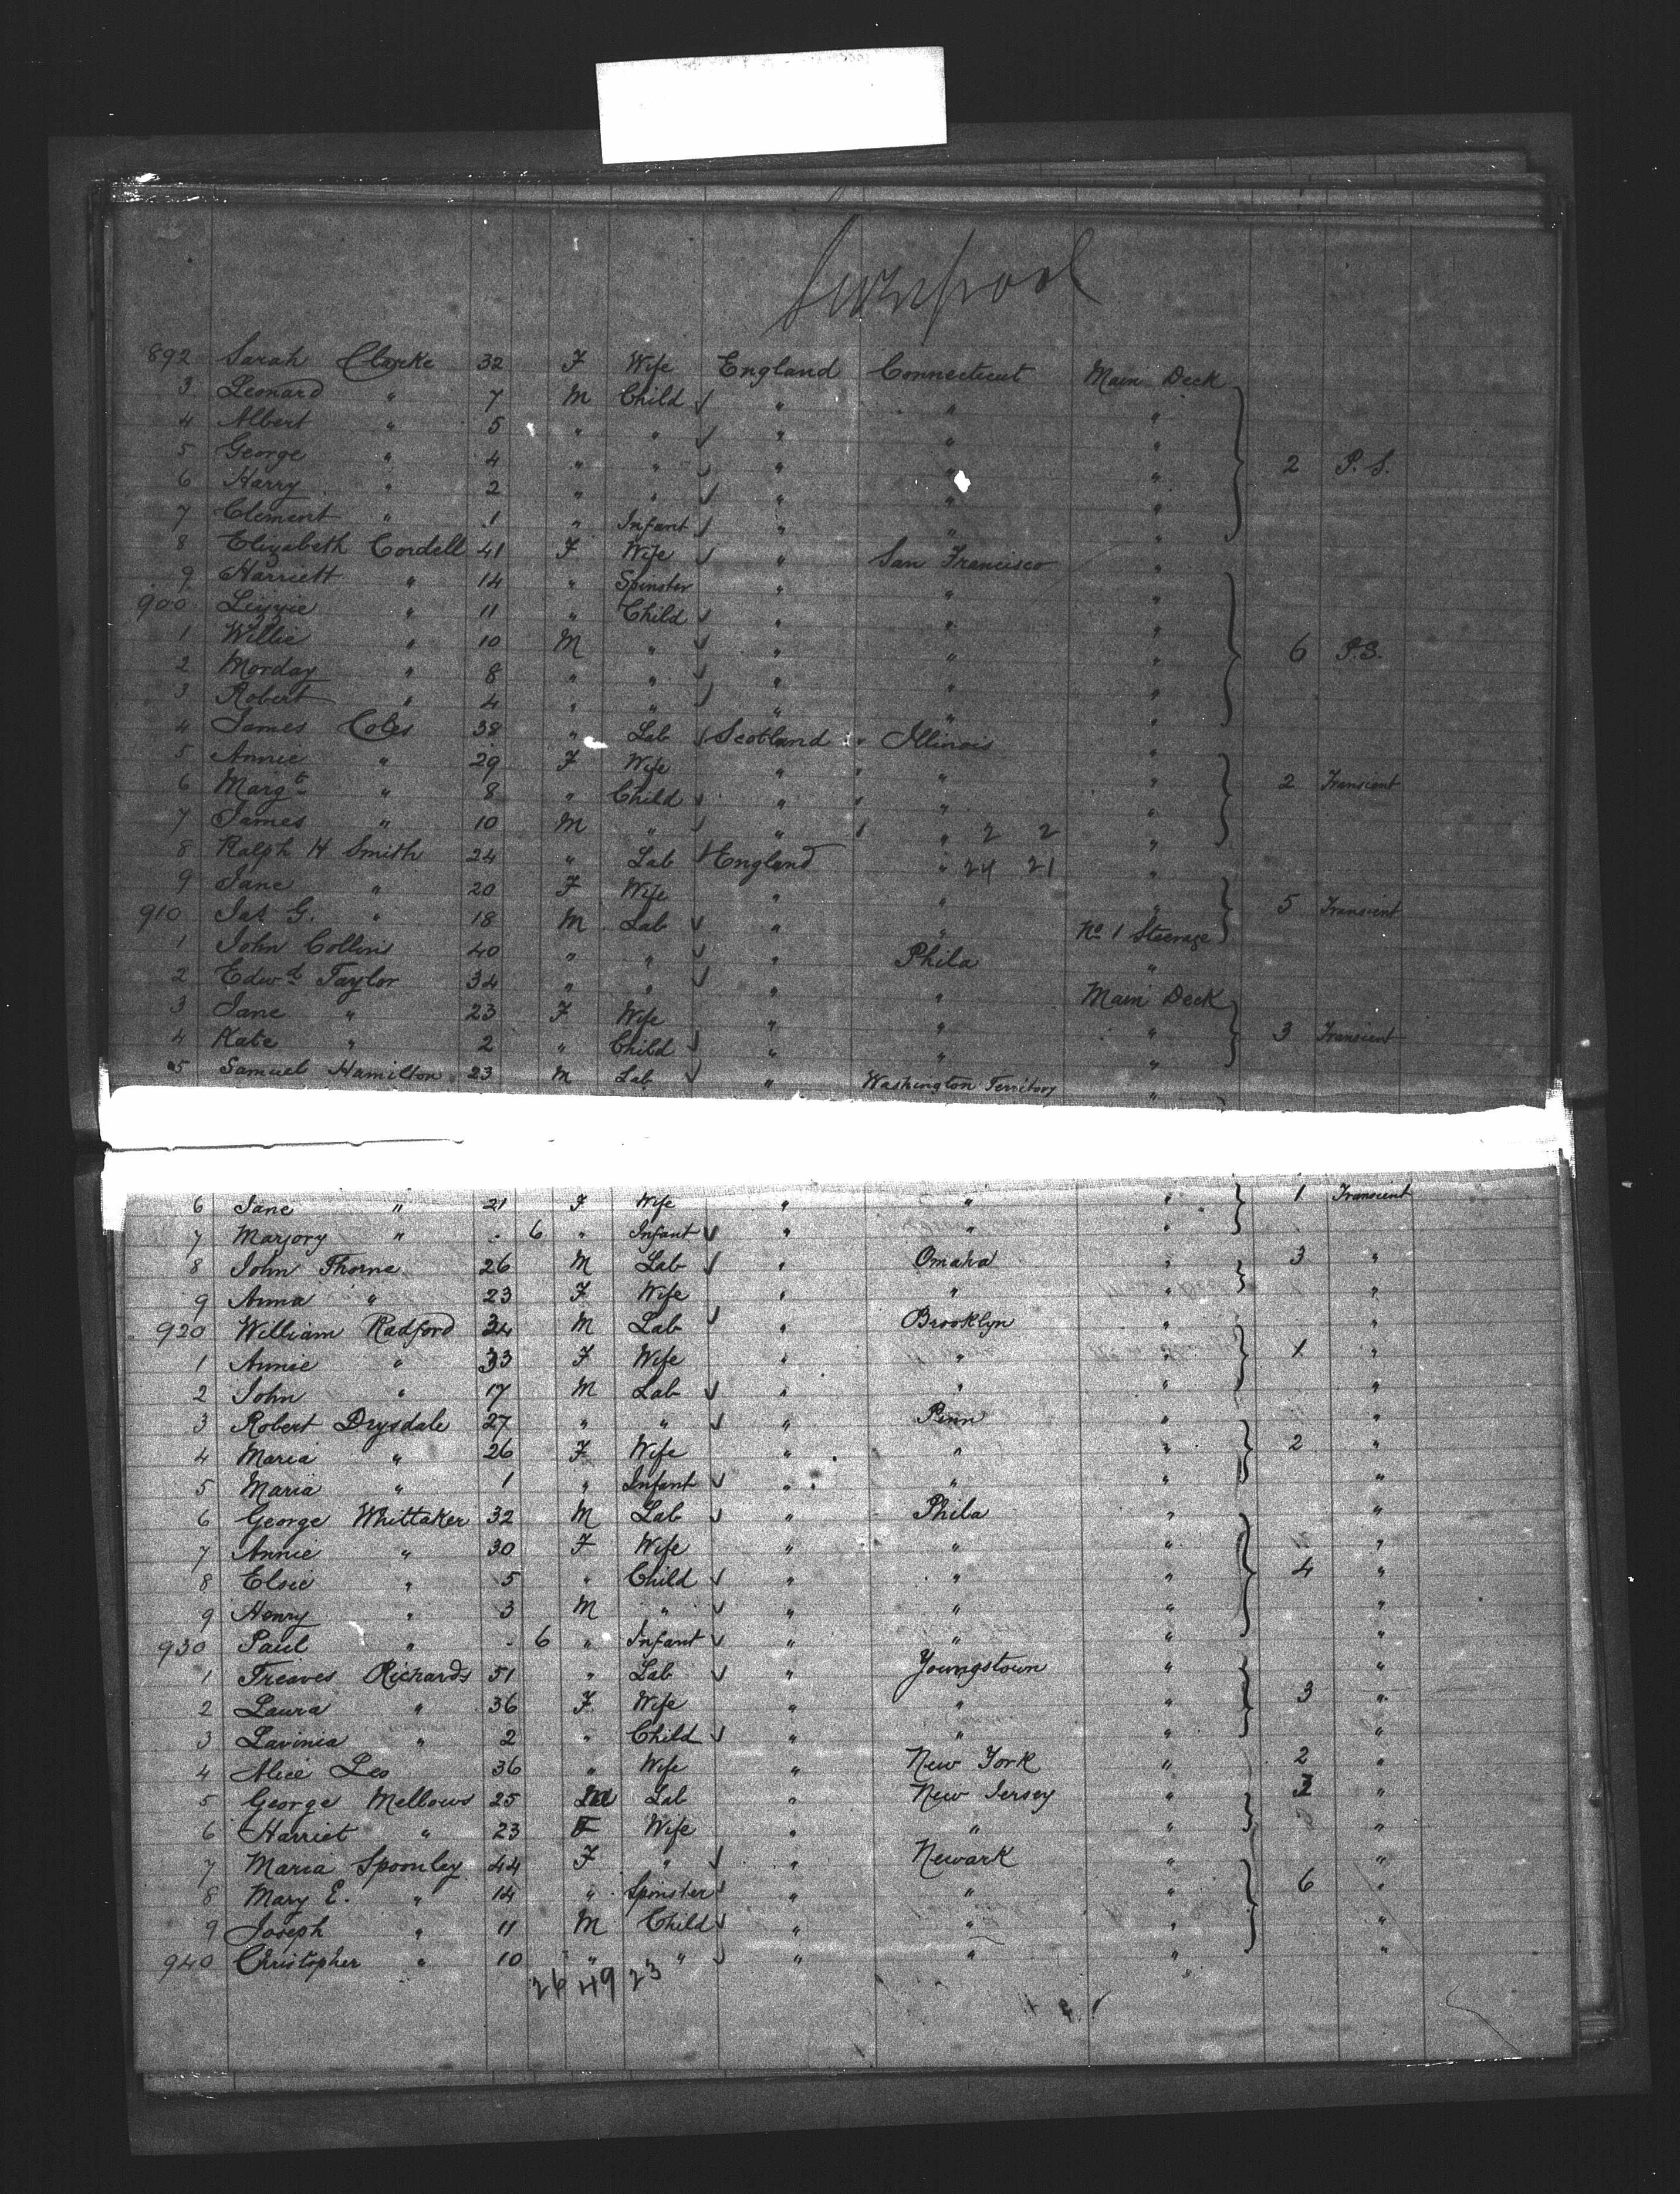 Liverpool
892 Sarah Clarke 32 F Wife England Connecticut Main Deck
3 Leonard " 7 M Child " " "
4 Albert " 5 " " " " "
5 George " 4 " " " " " 2 P. S.
6 Harry " 2 " " " " "
7 Clement " 1 " Infant " " "
8 Elizabeth Cordell 41 F Wife " San Francisco "
9 Harriett " 14 " Spinster " " "
900 Lizzie " 11 " Child " " "
1 Willie " 10 M " " " " 6 P.S.
2 Morday " 8 " " " " "
3 Robert " 4 " " " " "
4 James Coles 38 " Lab Scotland Illinois "
5 Annie " 29 F Wife " " "
6 Margt " 8 " Child " " " 2 Transient
7 James " 10 M " " " 2 2 "
8 Ralph H Smith 24 " Lab England " 24 21 "
9 Jane " 20 F Wife " " " 5 Transient
910 Jas G. " 18 M Lab " " No 1 Steerage
1 John Collins 40 " " " Phila "
2 Edwd Taylor 34 " " " " Main Deck
3 Jane " 23 F Wife " " "
4 Kate " 2 " Child " " " 3 Transient
5 Samuel Hamilton 23 M Lab " Washington Territory "
6 Jane " 21 F Wife " " " 1 Transient
7 Marjory " - 6 " Infant " " "
8 John Thorne 26 M Lab " Omaha " 3 "
9 Anna " 23 F Wife " " " "
920 William Radford 34 M Lab " Brooklyn " "
1 Annie " 33 F Wife " " " 1 "
2 John " 17 M Lab " " " "
3 Robert Drysdale 27 " " " Penn " "
4 Maria " 26 F Wife " " " 2 "
5 Maria " 1 " Infant " " " "
6 George Whittaker 32 M Lab " Phila " "
7 Annie " 30 F Wife " " " "
8 Elsie " 5 " Child " " " 4 "
9 Henry " 3 M " " " " "
930 Paul " - 6 " Infant " " " "
1 Treaves Richards 51 " Lab " Youngstown " "
2 Laura " 36 F Wife " " " 3 "
3 Lavinia " 2 " Child " " " "
4 Alice Leo 36 " Wife " New York " 2 "
5 George Mellows 25 M Lab " New Jersey " "
6 Harriet " 23 F Wife " " " "
7 Maria Spoonley 44 F " " Newark " "
8 Mary E. " 14 " Spinster " " " 6 "
9 Joseph " 11 M Child " " " "
940 Christopher " 10 " " " " " "
26 49 23